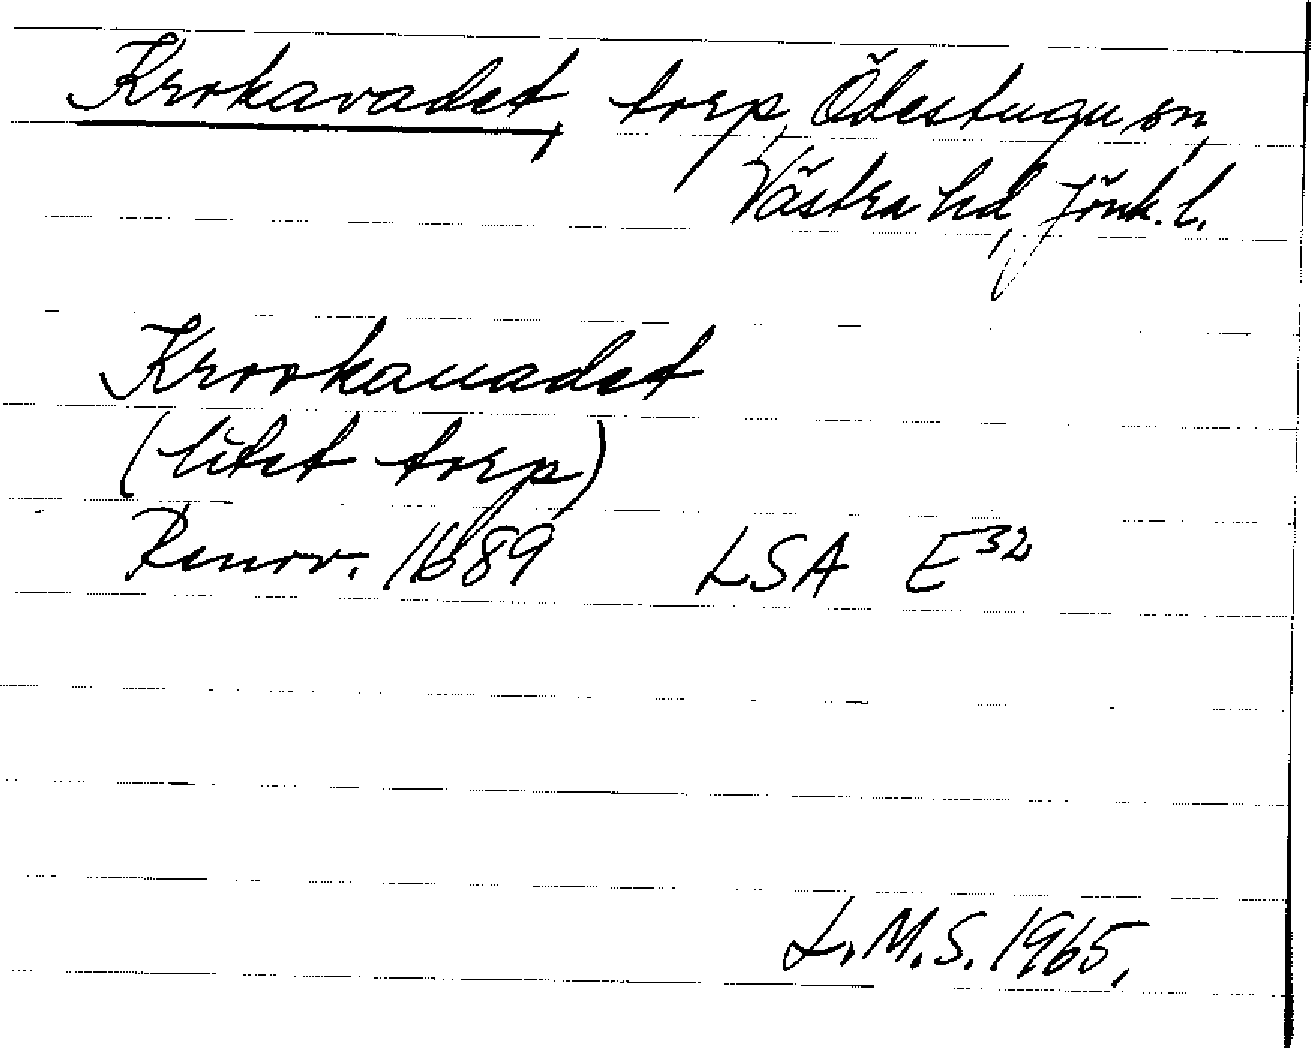 Krokavadet, torp, Ödestugu sn,
Västra hd, Jönk. l.
Krookauadet
(litet torp)
Renov. 1689 LSA E32
L.M.S. 1965.